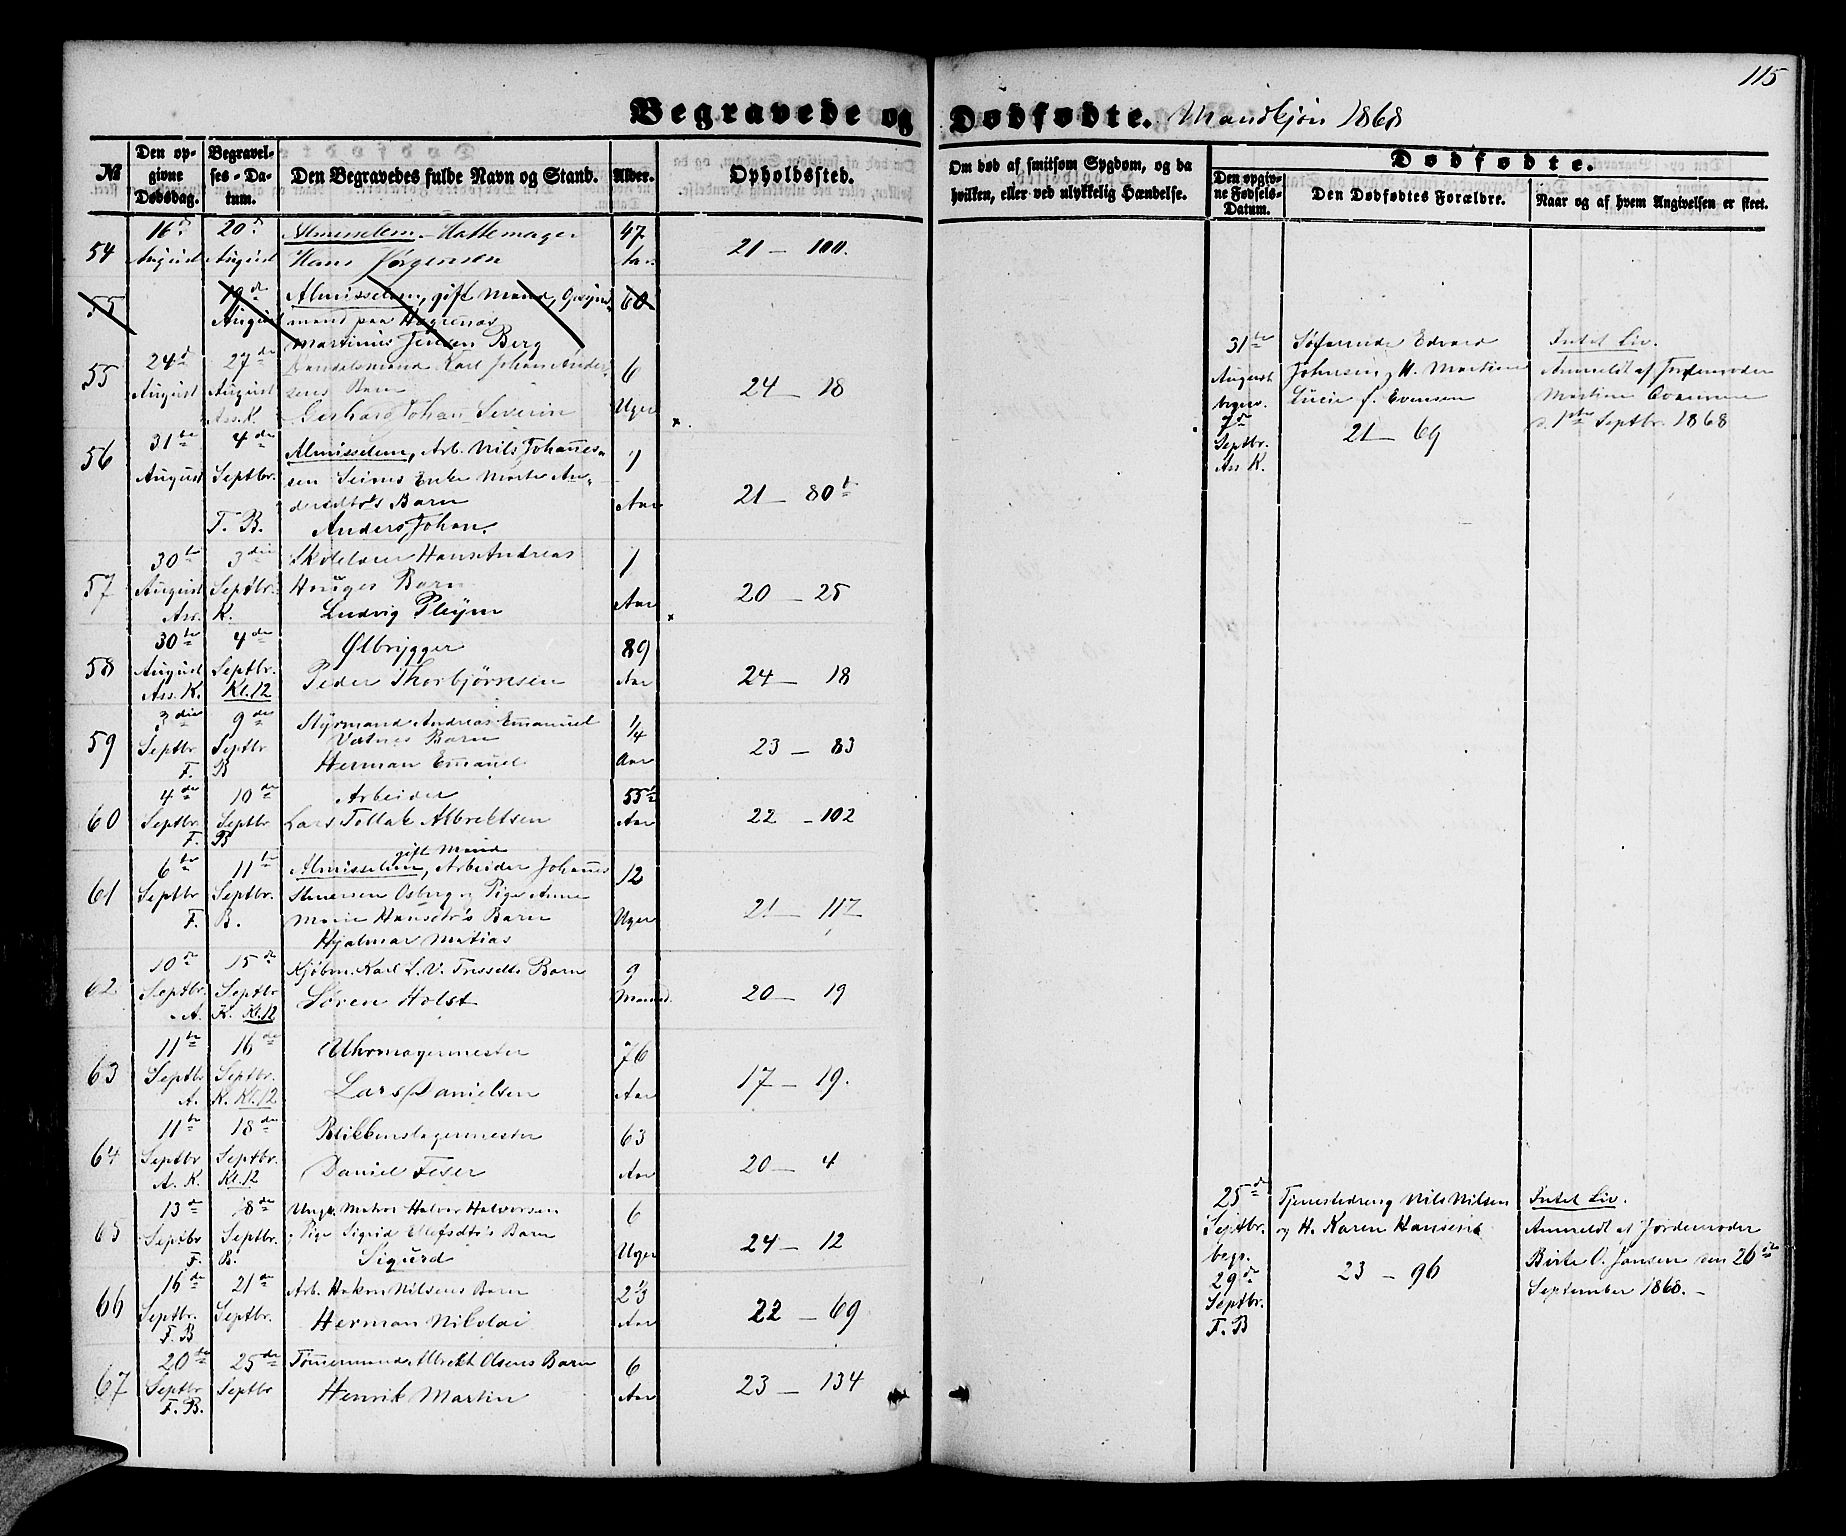 115
Begravede og Dødfødte. Mandkjøn 1868
№
Den opgivne Dødsdag.
Begravelses-Datum.
Den Begravedes fulde Navn og Stand.
Alder.
Opholdssted.
Om død af smitsom Sygdom, og da
hvilken, eller ved ulykkelig Hændelse.
Dødfødte.
Den opgivne Fødsels-Datum.
Den Dødfødtes Forældre.
Naar og af hvem Angivelsen er skeet.
54
16de August
20de August
Almisselem. Hattemager
Hans Jørgensen
47 Aar.
21 – 100.
55
19de August
Almisselem, gift Mand,
mand paa
Martinus Jensen Berg
60
55
24de August
27de August
Ass. K.
Handelsmand Karl Johan Andersens Barn
Gerhard Johan Severin
6 Uger
24 – 18
56
31te August
4de Septbr.
F. B.
Almisselem, Arb. Nils Johannessen
Enke Marte
Barn
Anders Johan.
1 Aar
21 – 80b
57
30te August
Ass. K.
3die Septbr.
Skolelærer Hans Andreas
Hauges Barn
Ludvig Pleym
1 Aar
20 – 25
58
30te August
Ass. K.
4de Septbr.
Kl. 12
Ølbrygger
Peder Thorbjørnsen
89 Aar
24 – 18
59
3die Septbr
F. B
9de Septbr
Styrmand Andreas Emanuel
Vatnes Barn
Herman Emanuel
1/4 Aar
23 – 83
60
4de Septbr
F. B
10de Septbr
Arbeider
Lars Tollak Albrektsen
55 1/2 Aar
22 – 102
61
6te Septbr
F. B.
11te Septbr.
gift Mand
Almisselem, Arbeider Johannes
Osberg og Pige Anne
Marie Hansdtr's Barn
Hjalmar Matias
12 Uger
21 – 117
62
10de Septbr.
A. K.
15de Septbr
Kl. 12
Kjøbm. Karl L. V. Barn
Søren Holst
9 Maaned.
20 – 19
63
11te Septbr
A. K.
16de Septbr.
Kl. 12
Uhrmagermester
Lars Danielsen
76 Aar
17 – 19.
64
11te Septbr
A. K.
18de Septbr.
Kl. 12
Blikkenslagermester
Daniel
63 Aar
20 – 4
65
13de Septbr
F. B.
18de Septbr.
Ungk. Matros Halvor Halvorsen
og Pige Sigrid Ellefsdtr's Barn
Sigurd
6 Uger
24 – 12
66
16de Septbr.
F. B
21de Septbr.
Arb. Hakon Nilsens Barn
Herman Nikolai
2 1/3 Aar
22 – 69
67
20de Septbr
F. B.
25de Septbr
Tømmermand Albrekt Olsens Barn
Henrik Martin
6 Aar
23 – 134
31te August
begr.
7de Septbr.
Ass. K.
Søfarende Edvard
Johnsen og H. Martine
Lucie f. Evensen
21 – 69
Intet Liv.
Anmeldt af Jordemoder
Martine
d. 1ste Septbr. 1868
25de Septbr.
begr.
29de Septbr.
F. B
Tjenestedreng Nils Nilsen
og H. Karen Hansen
23 – 96
Intet Liv.
Anmeldt af Jordemoder
Birte O. Jansen den 26de
September 1868. –